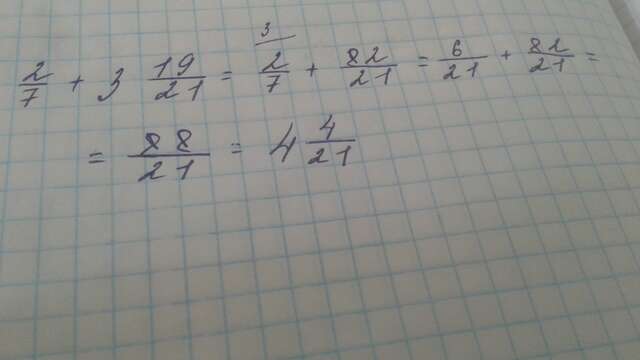 2/7 + 3 19/21 = 2/7 ^3 + 82/21 = 6/21 + 82/21 =
= 88/21 = 4 4/21